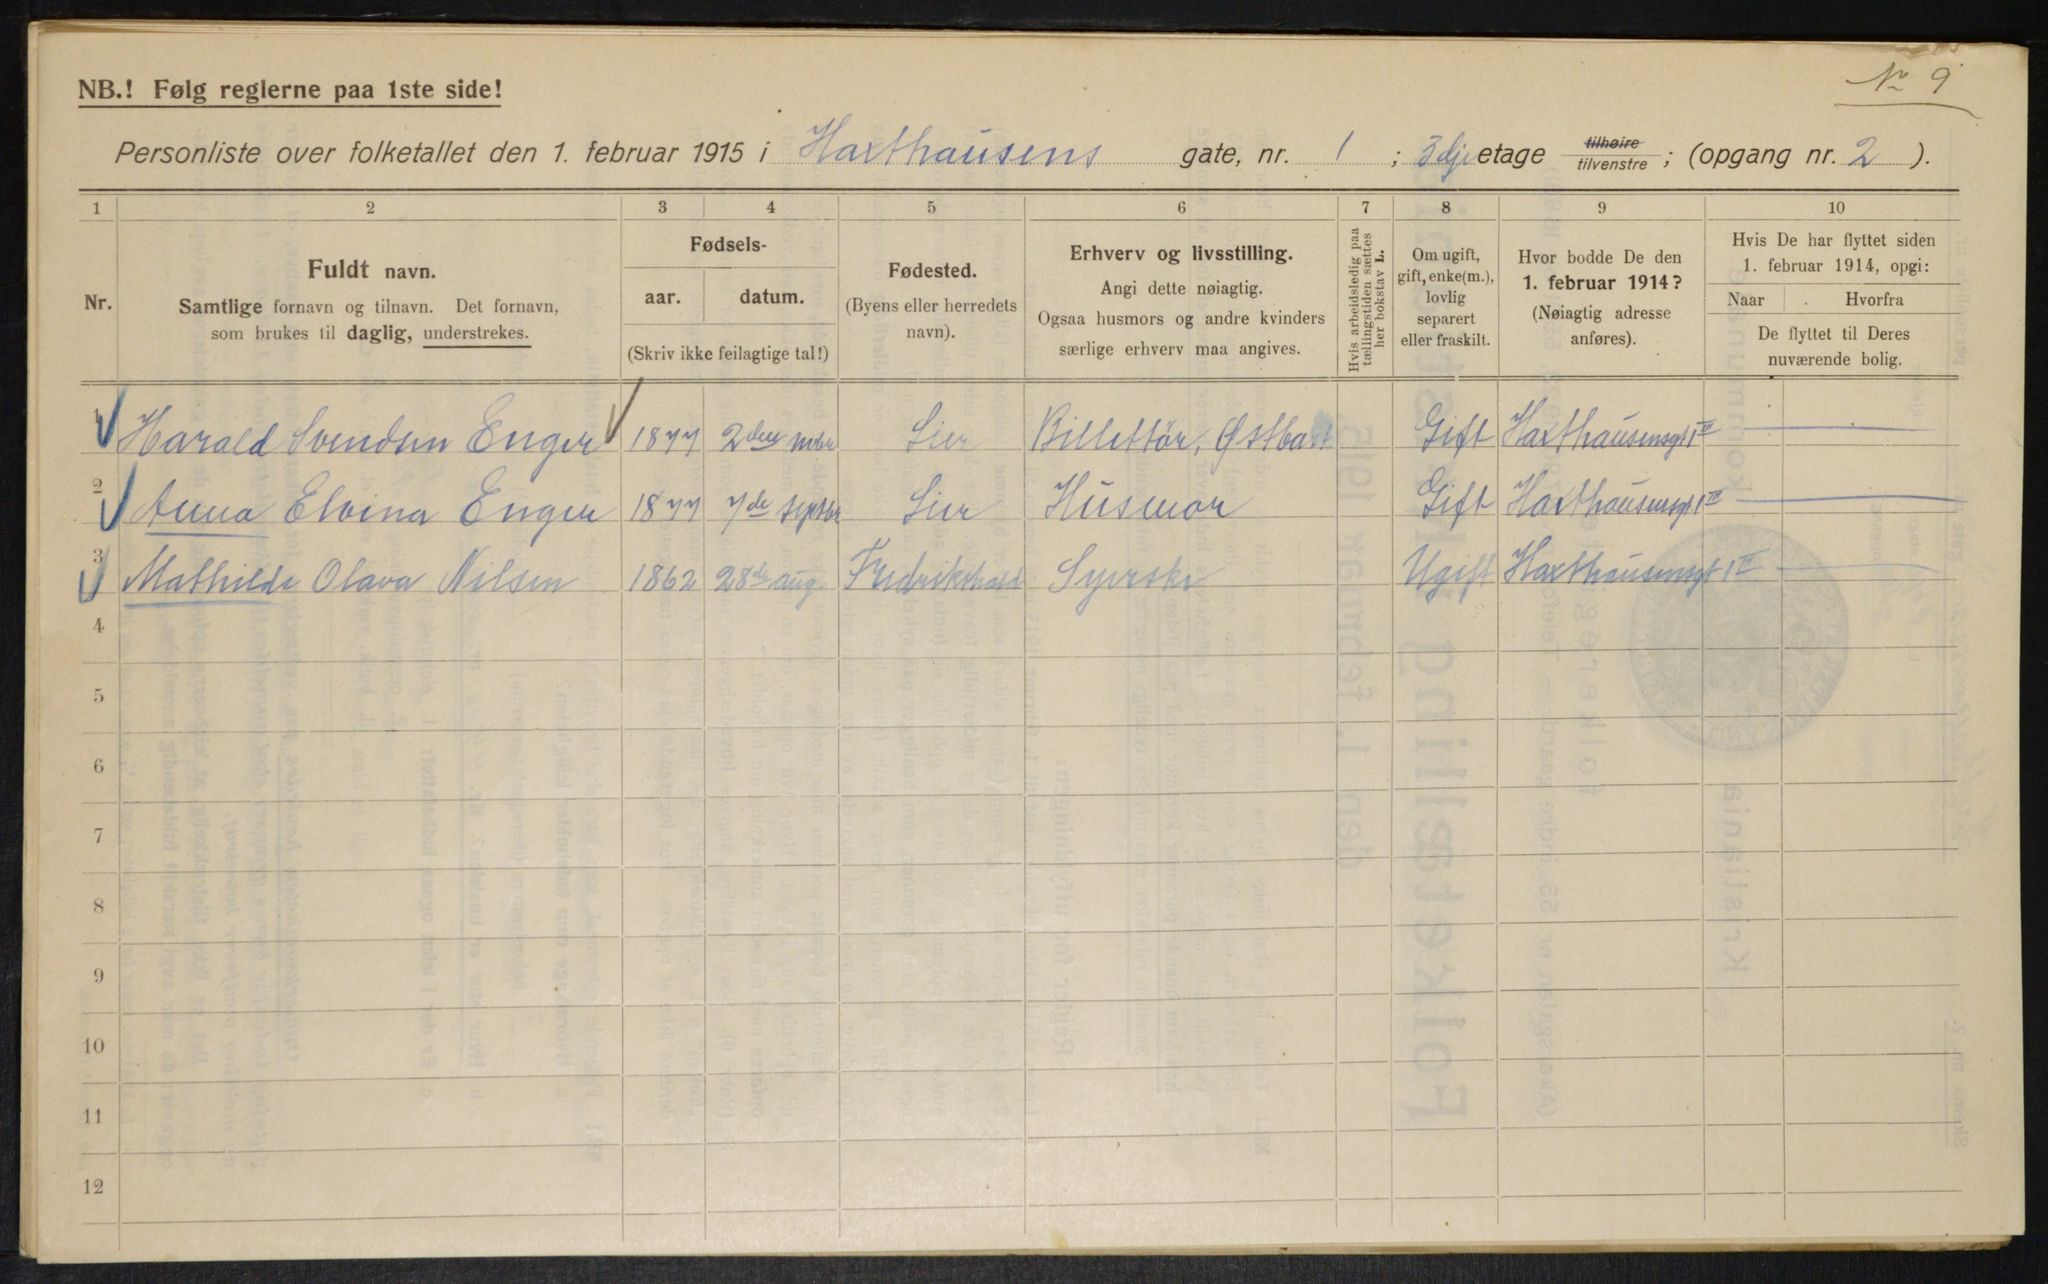 No 9
NB.! Følg reglerne paa 1ste side!
Personliste over folketallet den 1. februar 1915 i Haxthausens gate, nr. 1 ; 3dje etage tilhøire tilvenstre ; (opgang nr. 2 ).
1 2 3 4 5 6 7 8 9 10
Nr.
Fuldt navn.
Samtlige fornavn og tilnavn. Det fornavn,
som brukes til daglig, understrekes.
Fødsels-
aar. datum.
(Skriv ikke feilagtige tal!)
Fødested.
(Byens eller herredets
navn).
Erhverv og livsstilling.
Angi dette nøiagtig.
Ogsaa husmors og andre kvinders
særlige erhverv maa angives.
Hvis arbeidsledig paa
tællingstiden sættes
her bokstav L.
Om ugift,
gift, enke(m.),
lovlig
separert
eller fraskilt.
Hvor bodde De den
1. februar 1914?
(Nøiagtig adresse
anføres).
Hvis De har flyttet siden
1. februar 1914, opgi:
Naar . Hvorfra
De flyttet til Deres
nuværende bolig.
1 Harald Svendsen Enger 1877 2den Sier Billettör, Østba Gift Haxthausensgt 1 III
2 Anna Elvina Enger 1877 7de septbr Sier Husmor Gift Haxthausensgt 1 III
3 Mathilde Olava Nilsen 1862 28de aug. Fredrikshald Syerske Ugift Haxthausensgt 1 III
4
5
6
7
8
9
10
11
12